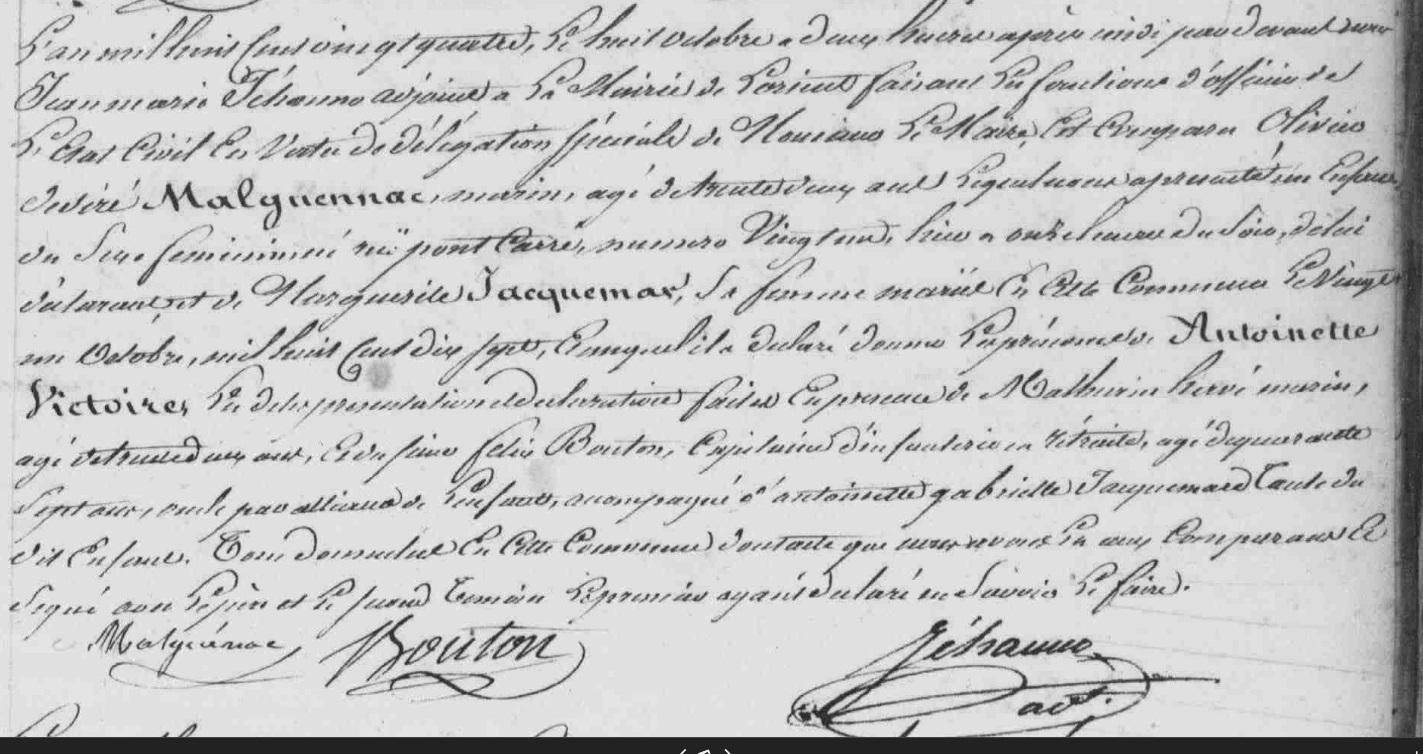 L'an mil huit Cent vingt quatre, Le huit octobre a deux heures après midi pardevant nous
Jean marie Jéhanno adjoint a La Mairie de Lorient faisant Les fonctions d'officier de
L'Etat Civil En Vertu de délégation spéciale de Monsieur Le Maire, Est Comparu Olivier
desiré Malguennac, marin, agé de trente deux ans Lequel nous a presenté un Enfant
du Sexe feminin né rue pont Carré, numero Vingt , hier a onze heures du Soir, de lui
déclarant, et de Marguerite Jacquemar, Sa femme mariés En Cette Commune Le Vingt
un Octobre, mil huit Cent dix sept, Et auquel il a déclaré donner Les prénoms de Antoinette
Victoire, Les dites presentation et declaration faites En presence de Mathurin hervé marin,
agé de trente deux ans, Et du Sieur felix Bouton, Capitaine d'infanterie en rétraite, agé de quarante
Sept ans, oncle par alliance de L'enfant, accompagné d'antoinette gabrielle Jacquemard Tante du
dit Enfant. Tous domiciliés En Cette Commune dont acte que nous avons Lu aux Comparans Et
Signé avec Le père et Le second Temoin Le premier ayant declaré ne Savoir Le faire.
Malguénac Bouton Jéhanno
adt.